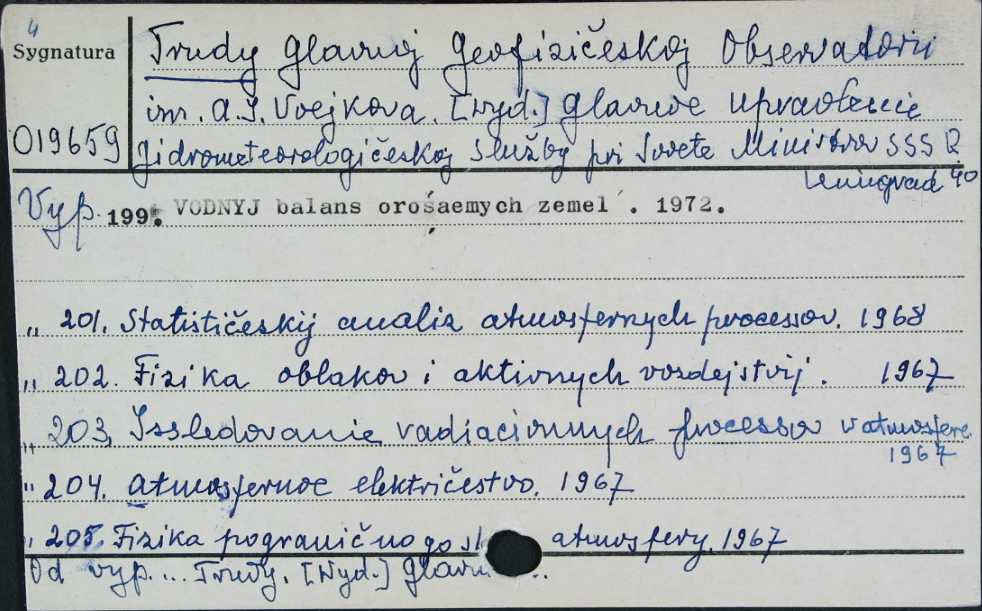 4
Sygnatura
019659
Trudy Glavnoj Geofizičeskoj Observatorii
im. A.I. Voejkova. [Wyd.] Glavnoe Upravlenie
Gidrometeorologičeskoj Služby pri Sovete Ministrov SSSR
Leningrad 40
Vyp. 199. VODNYJ balans orošaemych zemel . 1972.
„ 201. Statističeskij analiz atmosfernych processov. 1968
„ 202. Fizika oblakov i aktivnych vozdejstvij. 1967
„ 203. Issledovanie radiacionnych processov v atmosfere
1967
„ 204. Atmosfernoe električestvo. 1967
„ 205. Fizika pograničnogo sl atmosfery. 1967
Od vyp. ... Trudy. [Wyd.] Glavn ..